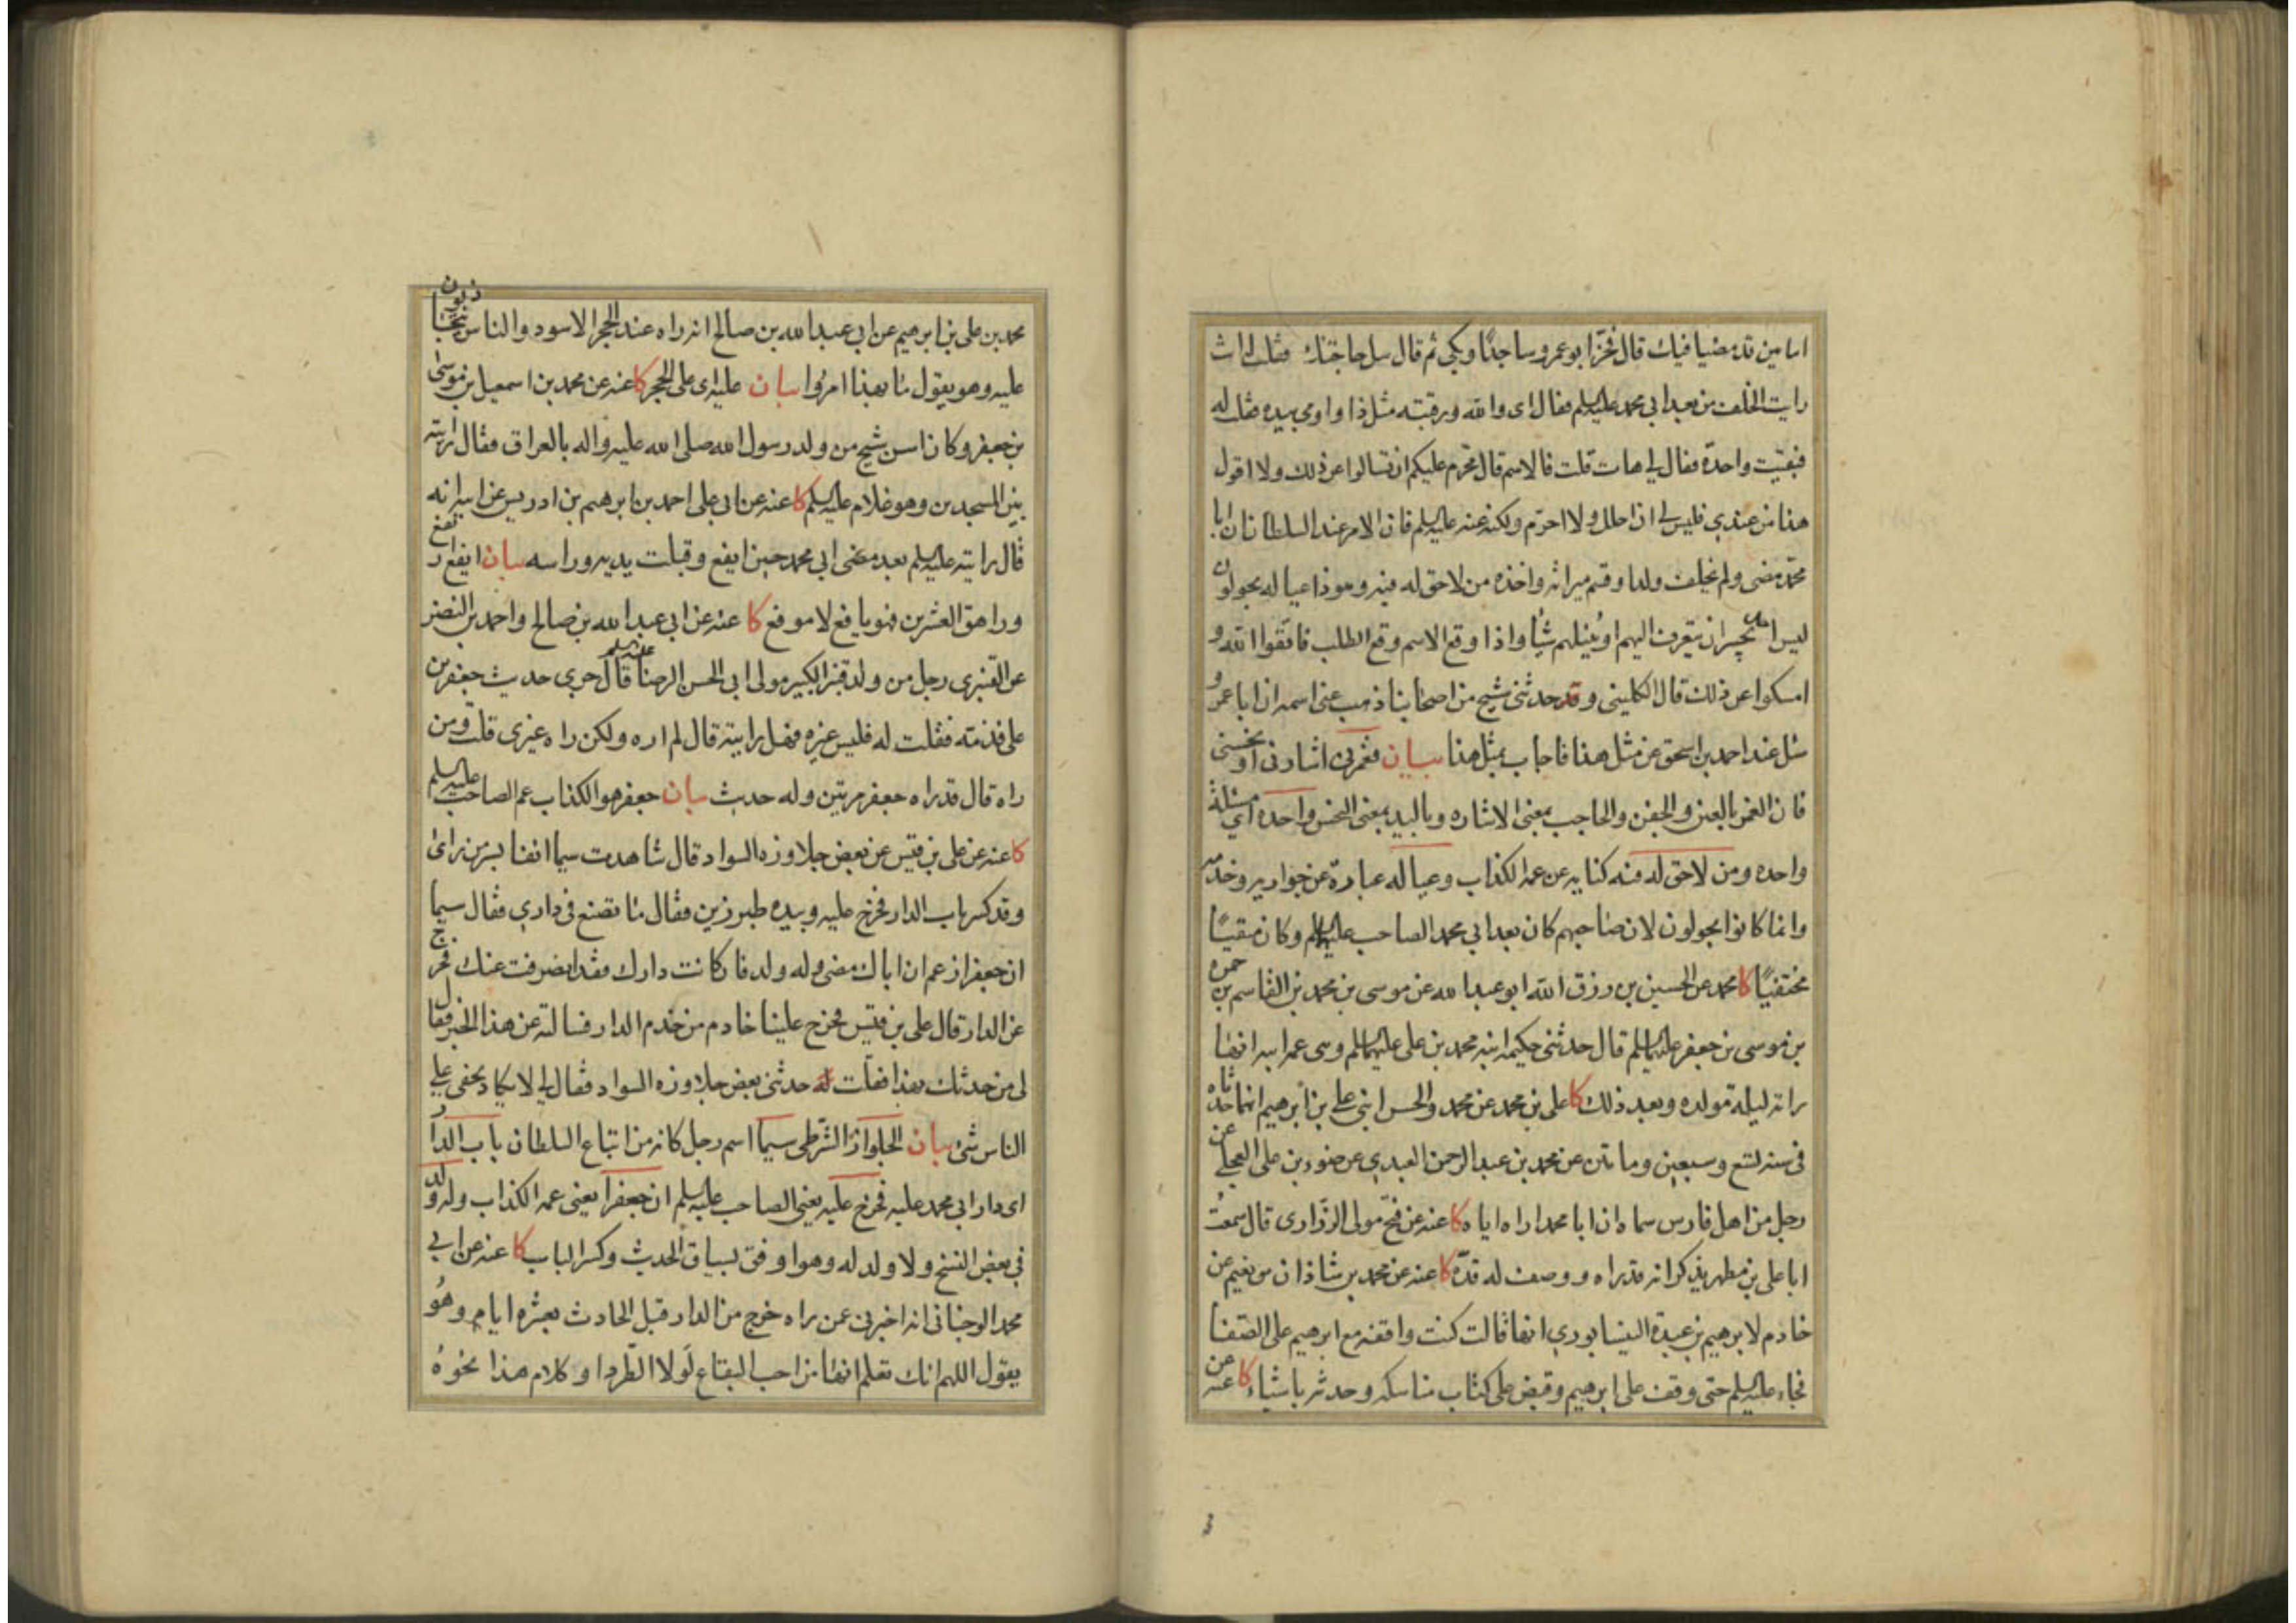 امامين قد مضيا فيك قال فخر ابو عمرو ساجدًا وبكى ثم قال سل حاجتك فقلت له انت
رايت الخلف من بعد ابي محمد عليه السلم فقال اى والله ورقبته مثل ذا واومى بيده فقلت له
فبقيت واحدة فقال لي هات قلت فالاسم قال محرم عليكم ان تسالوا عن ذلك ولا اقول
هذا من عندي فليس لي ان احلل ولا احرّم ولكن عنه عليه السلم فان الامر عند السلطان ان ابا
محمّد مضى ولم يخلف ولدا وقسم ميراثه واخذه من لا حق له فيه وهو ذا عياله يجولون
ليس احد يجسر ان يتعرف اليهم او يُنيلهم شيًا واذا وقع الاسم وقع الطلب فاتقوا الله و
امسكوا عن ذلك قال الكليني وقد حدثنى شيخ من اصحابنا ذهب عنى اسمه ان ابا عمرو
سئل عند احمد بن اسحق عن مثل هذا فاجاب بمثل هذا بيان فغمزنى اشار نى او نخسنى
فان الغمز بالعين والجفن والحاجب بمعنى الاشاره وباليد بمعنى النخس واحدة اي مسئلة
واحده ومن لا حق له فيه كنايه عن عمه الكذاب وعياله عبارة عن جواريه وخدمه
وانما كانوا يجولون لان صاحبهم كان بعد ابي محمد الصاحب عليهما السلم وكان متقيًا
مختفيًا كا محمد عن الحسين بن رزق الله ابو عبد الله عن موسى بن محمد بن القاسم بن حمزه
بن موسى بن جعفر عليهما السلم قال حدثتنى حكيمه ابنه محمد بن على عليهما السلم وهى عمه ابيه انها
راته ليله مولده وبعد ذلك كا على بن محمد عن محمد والحسن ابنى على بن ابرهيم انهما حدثاه
فى سنه تسع وسبعين وماتين عن محمد بن عبد الرحمن العبدي عن ضوء بن على العجلي عن
رجل من اهل فارس سماه ان ابا محمد اراه اياه كا عنه عن فتح مولى الزرارى قال سمعت
ابا على بن مطهر يذكر انه قد راه ووصف له قدّه كا عنه عن محمد بن شاذان بن نعيم عن
خادم لابرهيم بن عبدة النيسابوري انها قالت كنت واقفه مع ابرهيم على الصفا
فجاء عليه السلم حتى وقف على ابرهيم وقبض على كتاب مناسكه وحدثه باشياء كا عنه عن
محمد بن على بن ابرهيم عن ابي عبد الله بن صالح انه راه عند الحجر الاسود والناس يتجاذبون
عليه وهو يقول ما بهذا امروا بيان عليه اى على الحجر كا عنه عن محمد بن اسمعيل بن موسى
بن جعفر وكان اسن شيخ من ولد رسول الله صلى الله عليه واله بالعراق فقال رايته
بين المسجدين وهو غلام عليه السلم كا عنه عن ابي على احمد بن ابرهيم بن ادريس عن ابيه انه
قال رايته عليه السلم بعد مضى ابي محمد حين ايفع وقبلت يديه وراسه بيان ايفع ارتفع
وراهق العشرين فهو يافع لا موفع كا عنه عن ابي عبد الله بن صالح واحمد بن النضر
عن القنبرى رجل من ولد قنبر الكبير مولى ابى الحسن الرضا عليه السلم قال جرى حديث جعفر بن
على فذمته فقلت له فليس غيره فهل رايته قال لم اره ولكن راه غيرى قلت ومن
راه قال قد راه جعفر مرتين وله حديث بيان جعفر هو الكذاب عم الصاحب عليه السلم
كا عنه عن على بن قيس عن بعض جلاوزه السواد قال شاهدت سيما انفا بسر من راى
وقد كسر باب الدار فخرج عليه وبيده طبرزين فقال ما تصنع فى داري فقال سيما
ان جعفرا زعم ان اباك مضى وله ولد فان كانت دارك فقد انصرفت عنك فخرج
عن الدار قال على بن قيس فخرج علينا خادم من خدم الدار فسالته عن هذا الخبر فقال
لى من حدثك بهذا فقلت له حدثنى بعض جلاوزه السواد فقال لي لا يكاد يخفى على
الناس شئ بيان الجلواز الشرطى سيما اسم رجل كانه من اتباع السلطان باب الدار
اى دار ابى محمد عليه فخرج عليه يعنى الصاحب عليه السلم ان جعفرا يعنى عمه الكذاب وله ولد
في بعض النسخ ولا ولد له وهو اوفق بسياق الحديث وكسر الباب كا عنه عن ابي
محمد الوجنانى انه اخبرنى عمن راه خرج من الدار قبل الحادث بعشره ايام وهو
يقول اللهم انك تعلم انها من احب البقاع لولا الطرد او كلام هذا نحوه